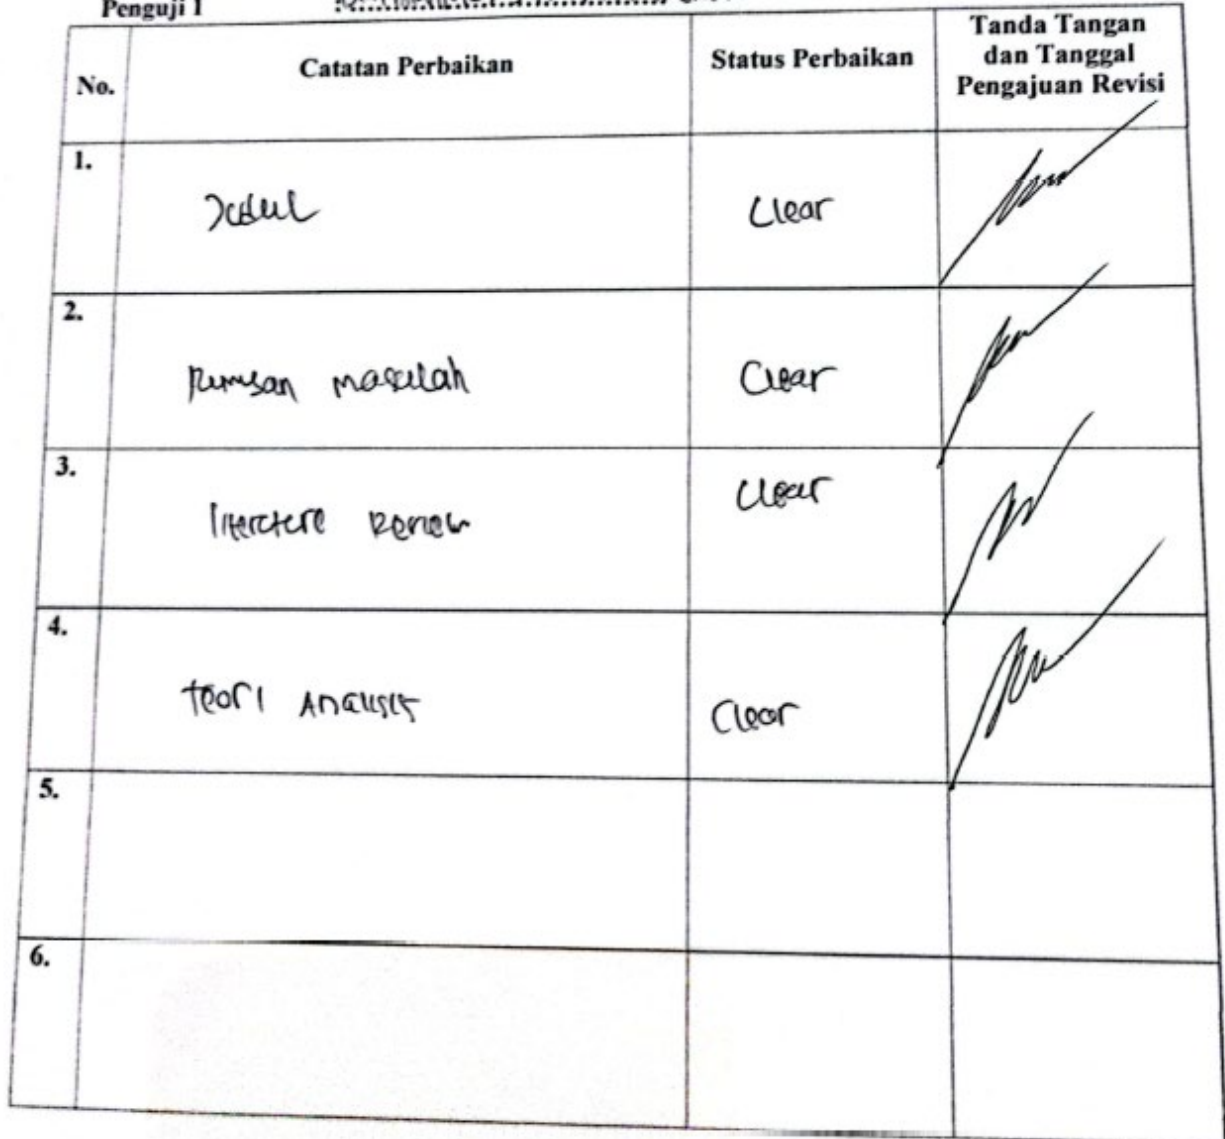 Penguji 1
No.
Catatan Perbaikan
Status Perbaikan
Tanda Tangan
dan Tanggal
Pengajuan Revisi
1.
Judul
Clear
2.
Rumusan masalah
Clear
3.
literature Review
Clear
4.
teori Analisis
Clear
5.
6.